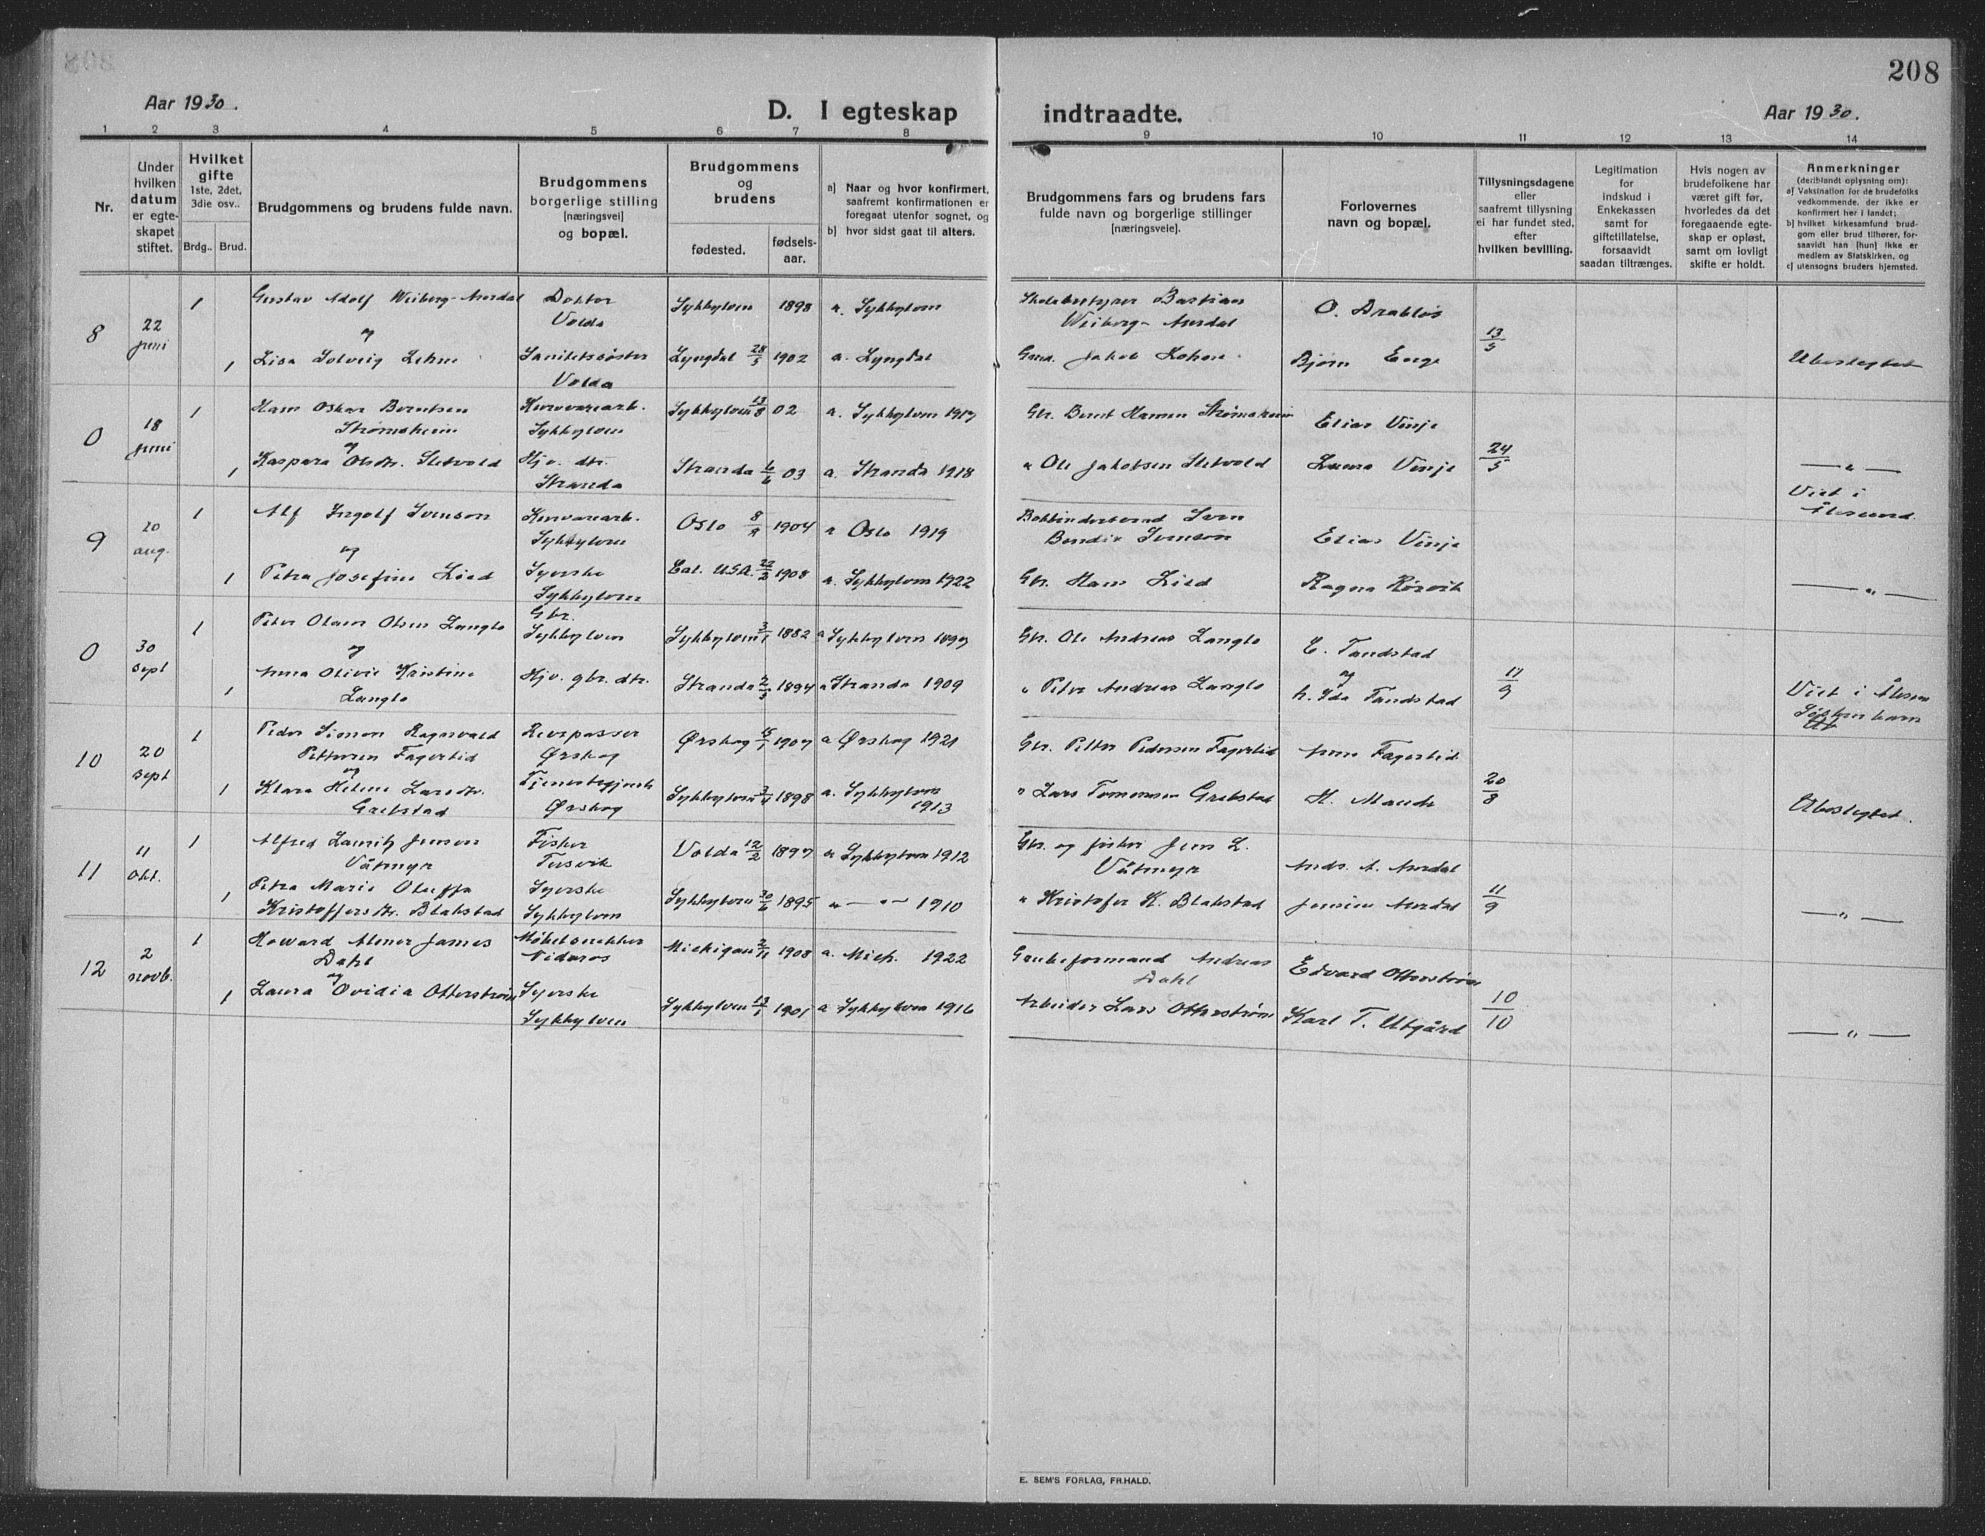 208
Aar 1930.
D. I egteskap indtraadte.
Aar 1930.
1 2 3 4 5 6 7 8 9 10 11 12 13 14
Nr.
Under hvilken datum er egteskapet stiftet.
Hvilket gifte
1ste, 2det, 3die osv..
Brdg.. Brud.
Brudgommens og brudens fulde navn.
Brudgommens borgerlige stilling
(næringsvei)
og bopæl.
Brudgommens og brudens
fødested. fødselsaar.
a) Naar og hvor konfirmert, saafremt konfirmationen er foregaat utenfor sognet, og
b) hvor sidst gaat til alters.
Brudgommens fars og brudens fars
fulde navn og borgerlige stillinger
(næringsveie).
Forlovernes
navn og bopæl.
Tillysningsdagene
eller
saafremt tillysning
ei har fundet sted,
efter
hvilken bevilling.
Legitimation
for
indskud i
Enkekassen
samt for
giftetillatelse,
forsaavidt
saadan tiltrænges.
Hvis nogen av
brudefolkene har
været gift før,
hvorledes da det
foregaaende egte-
skap er opløst,
samt om lovligt
skifte er holdt.
Anmerkninger
(deriblandt oplysning om):
a) Vaksination for de brudefolks vedkommende, der ikke er konfirmert her i landet;
b) hvilket kirkesamfund brudgom eller brud tilhører, forsaavidt han (hun) ikke er medlem av Statskirken, og
c) utensogns bruders hjemsted.
8 22 juni 1 Gustav Adolf Weiberg-Aurdal Doktor Volda Sykkylven 1898 a. Sykkylven Skolebestyrer Bastian Weiberg-Aurdal O. Drabløs 13/5
og
1 Lisa Solveig Sanitetssøster Volda Lyngdal 28/5 1902 a. Lyngdal Jakob Bjørn Enge Ubeslegtet
0 18 juni 1 Hans Oskar Berntsen Strømsheim Kurvvarearb. Sykkylven Sykkylven 13/8 02 a. Sykkylven 1917 Gbr. Bernt Hansen Strømsheim Elias Vinje 24/5
og
1 Kaspara Olsdtr. Sletvold Hjv. dtr. Stranda Stranda 6/6 03 a. Stranda 1918 " Ole Jakobsen Sletvold Laura Vinje — " —
Viet i Ålesund.
9 20 aug. 1 Alf Ingolf Svenson Kurvvarearb. Sykkylven Oslo 8/9 1904 a Oslo 1919 Bokbindersvend Sven Bendix Svenson Elias Vinje
og
1 Petra Josefine Lied Syerske Sykkylven Cal. U.S.A. 22/2 1908 a. Sykkylven 1922 Gbr. Hans Lied Ragna Rørvik — " —
0 30 sept 1 Peter Olaus Olsen Langlo Gbr. Sykkylven Sykkylven 3/1 1882 a Sykkylven 1897 Gbr. Ole Andreas Langlo E. Tandstad 11/9
og
1 Anna Olivie Kristine Langlo Hjv. gbr. dtr. Stranda 2/5 1894 a Stranda 1909 " Peter Andreas Langlo og h. Ida Tandstad Viet i Ålesun
Søskenbarn
10 20 sept 1 Peder Simon Ragnvald Pettersen Fagerlid Revepasser Ørskog Ørskog 1907 a Ørskog 1921 Gbr. Petter Pedersen Fagerlid Anne Fagerlid 20/8
og
1 Klara Helene Larsdtr. Grebstad Tjenestegjente Ørskog Sykkylven 1898 a. Sykkylven 1913 " Lars Tomassen Grebstad H. Maude Ubeslegtet.
11 11 okt. 1 Alfred Lauritz Jensen Våtmyr Fisker Tusvik Volda 12/2 1897 a Sykkylven 1912 Gbr. og fisker Jens L. Våtmyr Ands. A. Aurdal 11/9
1 Petra Marie Oluffa Kristoffersdtr. Blakstad Syerske Sykkylven Sykkylven 30/6 1895 " — " — 1910 " Kristofer K. Blakstad Jensine Aurdal — " —
12 2 novb. 1 Howard Almer James Dahl Møbelsnekker Nidaros Michigan 2/11 1908 a. Mich. 1922 Grubeformand Andreas Dahl Edvard Otterstrøm 10/10
og
1 Laura Ovidia Otterstrøm Syerske Sykkylven Sykkylven 13/1 1901 a Sykkylven 1916 Arbeider Lars Otterstrøm Karl T. Utgård — " —
E. SEM'S FORLAG, FR.HALD.